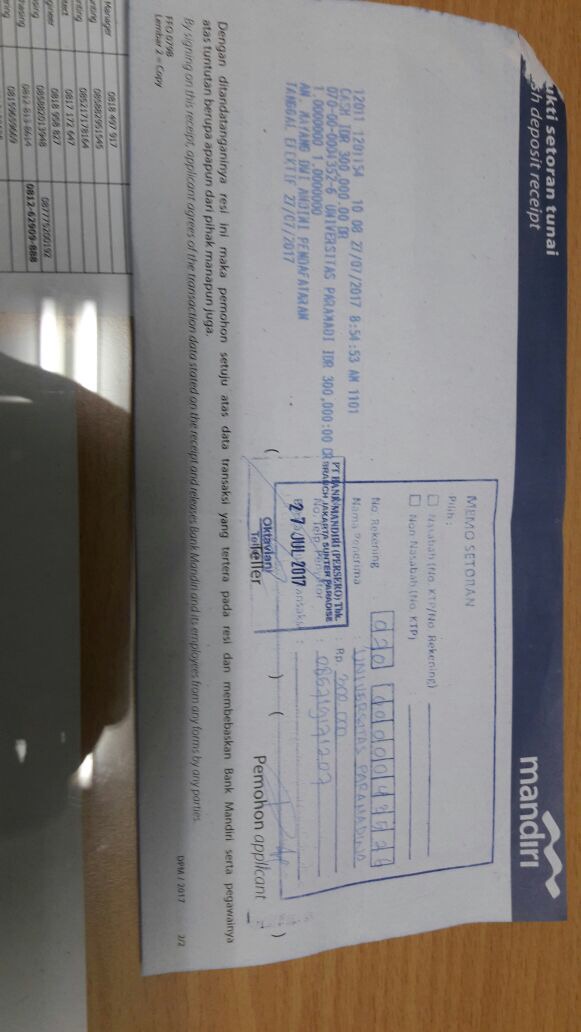 ukti setoran tunai
sh deposit receipt
mandiri
12011 1201154 10 08 27/07/2017 8:54:53 AM 1101
CASH IDR 300,000.00 DR
070-00-0004352-6 UNIVERSITAS PARAMADI IDR 300,000.00 CR
1.0000000 1.0000000
AN. DWI ANDINI PENDAFATARAN
TANGGAL EFEKTIF 27/07/2017
MEMO SETORAN
Pilih :
Nasabah (No. KTP/No. Rekening)
Non Nasabah (No. KTP)
No. Rekening 070 0000043526
Nama Penerima : UNIVERSITAS PARAMADINA
Rp. 300.000
No. Telp. :
PT BANK MANDIRI (PERSERO) Tbk.
BRANCH JAKARTA SUNTER PARADISE
27 JUL 2017
Oktaviani
Teller
Teller
Pemohon applicant
Dengan ditandatanganinya resi ini maka pemohon setuju atas data transaksi yang tertera pada resi dan membebaskan Bank Mandiri serta pegawainya
atas tuntutan berupa apapun dari pihak manapun juga.
By signing on this receipt, applicant agrees of the transaction data stated on the receipt and releases Bank Mandiri and its employees from any forms by any parties.
FFO 079B
Lembar 2 = Copy
DPM / 2017 2/2
Manager 0818 491 917
unting 085882951945
unting 085217178164
tect 0817 172 647
gineer 0818 958 827
vising 085880213948 087775200192
hasing 0812 813 8614 0812-62909-888
ering 081559579669